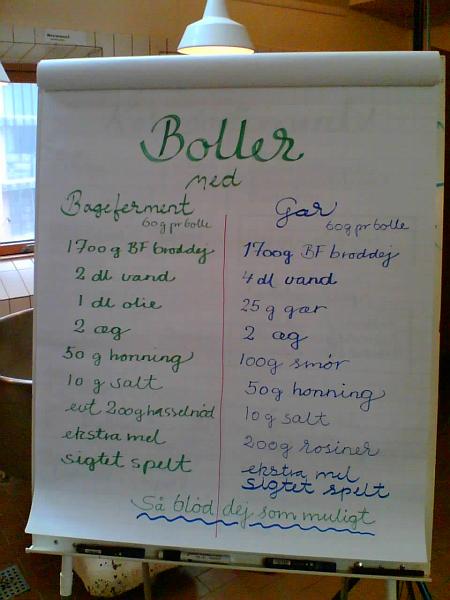 Boller
med
Bageferment
60g pr bolle
1700 g BF brøddej
2 dl vand
1 dl olie
2 æg
50 g honning
10 g salt
evt 200g hasselnød
ekstra mel
sigtet spelt
Gær
60g pr bolle
1700g BF brøddej
4 dl vand
25 g gær
2 æg
100g smör
50g honning
10g salt
200g rosiner
ekstra mel
sigtet spelt
Så blød dej som muligt